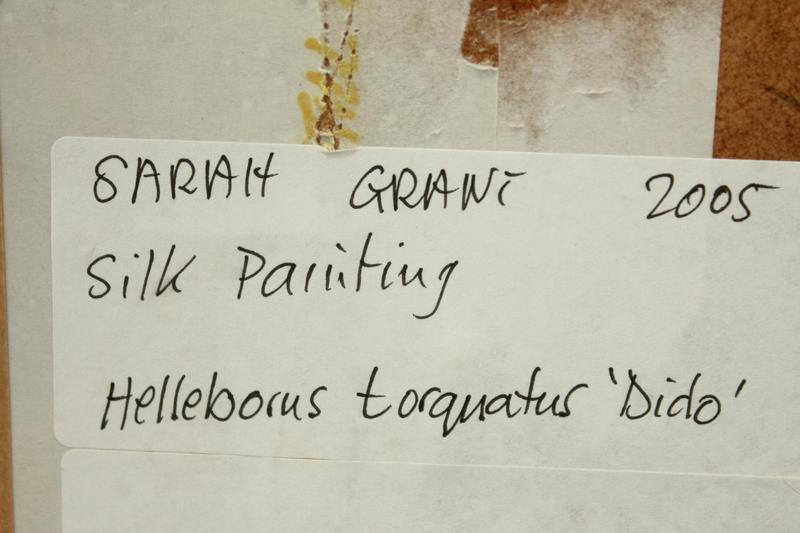 SARAH GRANT 2005
Silk Painting
Helleborus torquatus 'Dido'